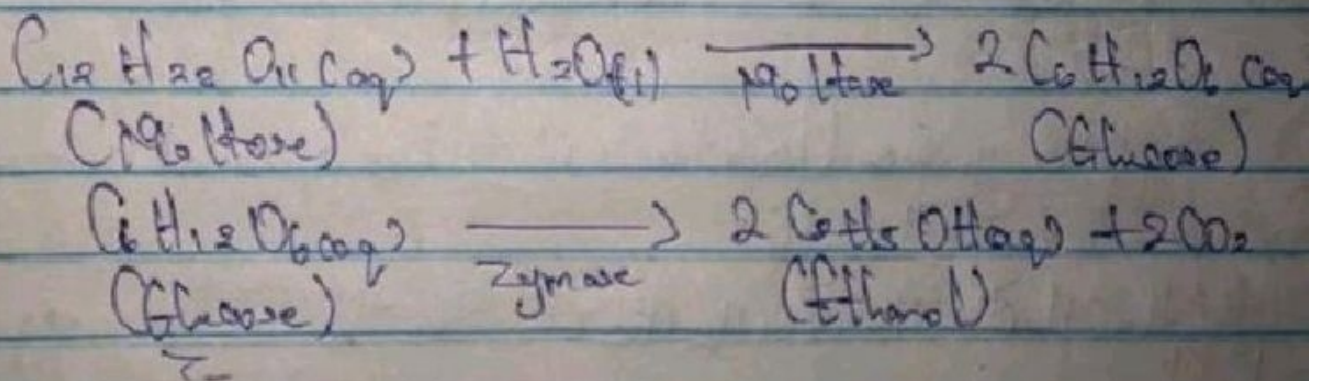 C₁₂ H₂₂ O₁₁ (aq) + H₂O(l) ⟶ Maltase 2 C₆ H₁₂O₆ (aq
(Maltose) (Glucose)
C₆ H₁₂ O₆ (aq) ⟶ Zymase 2 C₂H₅ OH(aq) + 2CO₂
(Glucose) (Ethanol)